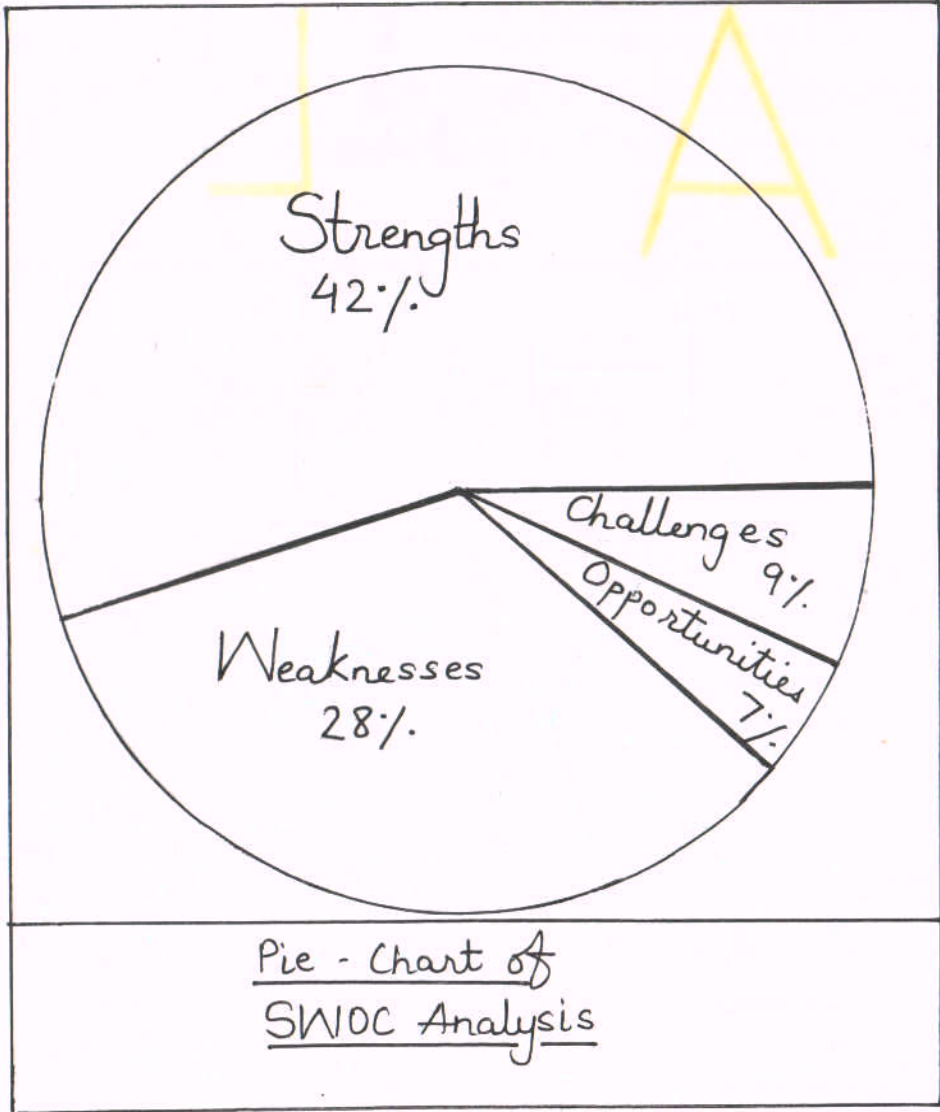 Strengths
42%
Challenges
9%
Opportunities
7%
Weaknesses
28%
Pie - Chart of
SWOC Analysis